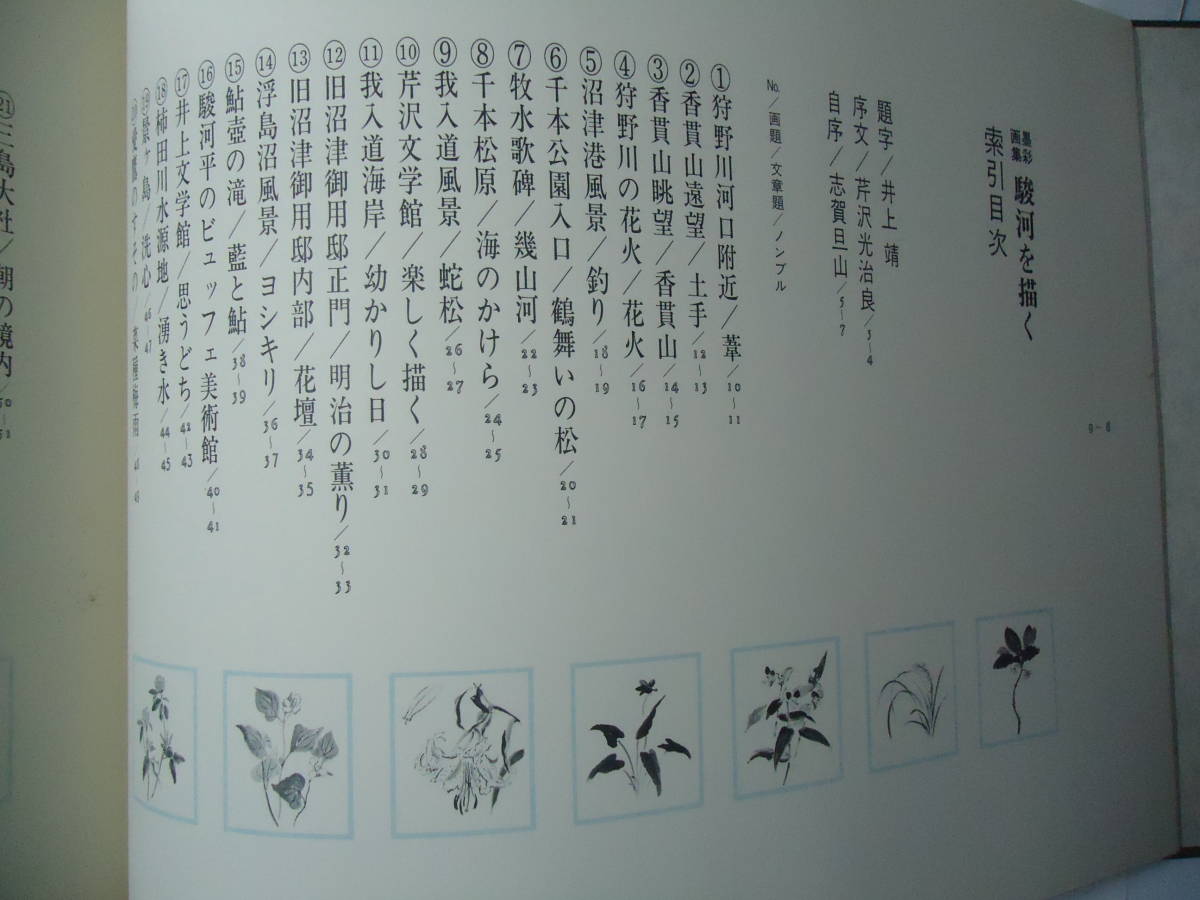 墨彩画集 駿河を描く
索引目次
8〜9
題字/井上 靖
序文/芹沢光治良/3〜4
自序/志賀旦山/5〜7
No./画題/文章題/ノンブル
①狩野川河口附近/葦/10〜11
②香貫山遠望/土手/12〜13
③香貫山眺望/香貫山/14〜15
④狩野川の花火/花火/16〜17
⑤沼津港風景/釣り/18〜19
⑥千本公園入口/鶴舞いの松/20〜21
⑦牧水歌碑/幾山河/22〜23
⑧千本松原/海のかけら/24〜25
⑨我入道風景/蛇松/26〜27
⑩芹沢文学館/楽しく描く/28〜29
⑪我入道海岸/幼かりし日/30〜31
⑫旧沼津御用邸正門/明治の薫り/32〜33
⑬旧沼津御用邸内部/花壇/34〜35
⑭浮島沼風景/ヨシキリ/36〜37
⑮鮎壺の滝/藍と鮎/38〜39
⑯駿河平のビュッフェ美術館/40〜41
⑰井上文学館/思うどち/42〜43
⑱柿田川水源地/湧き水/44〜45
⑲鮎ヶ島/洗心/46〜47
⑳愛鷹のすその/菜種梅雨
㉑三島大社/朝の境内/50〜51